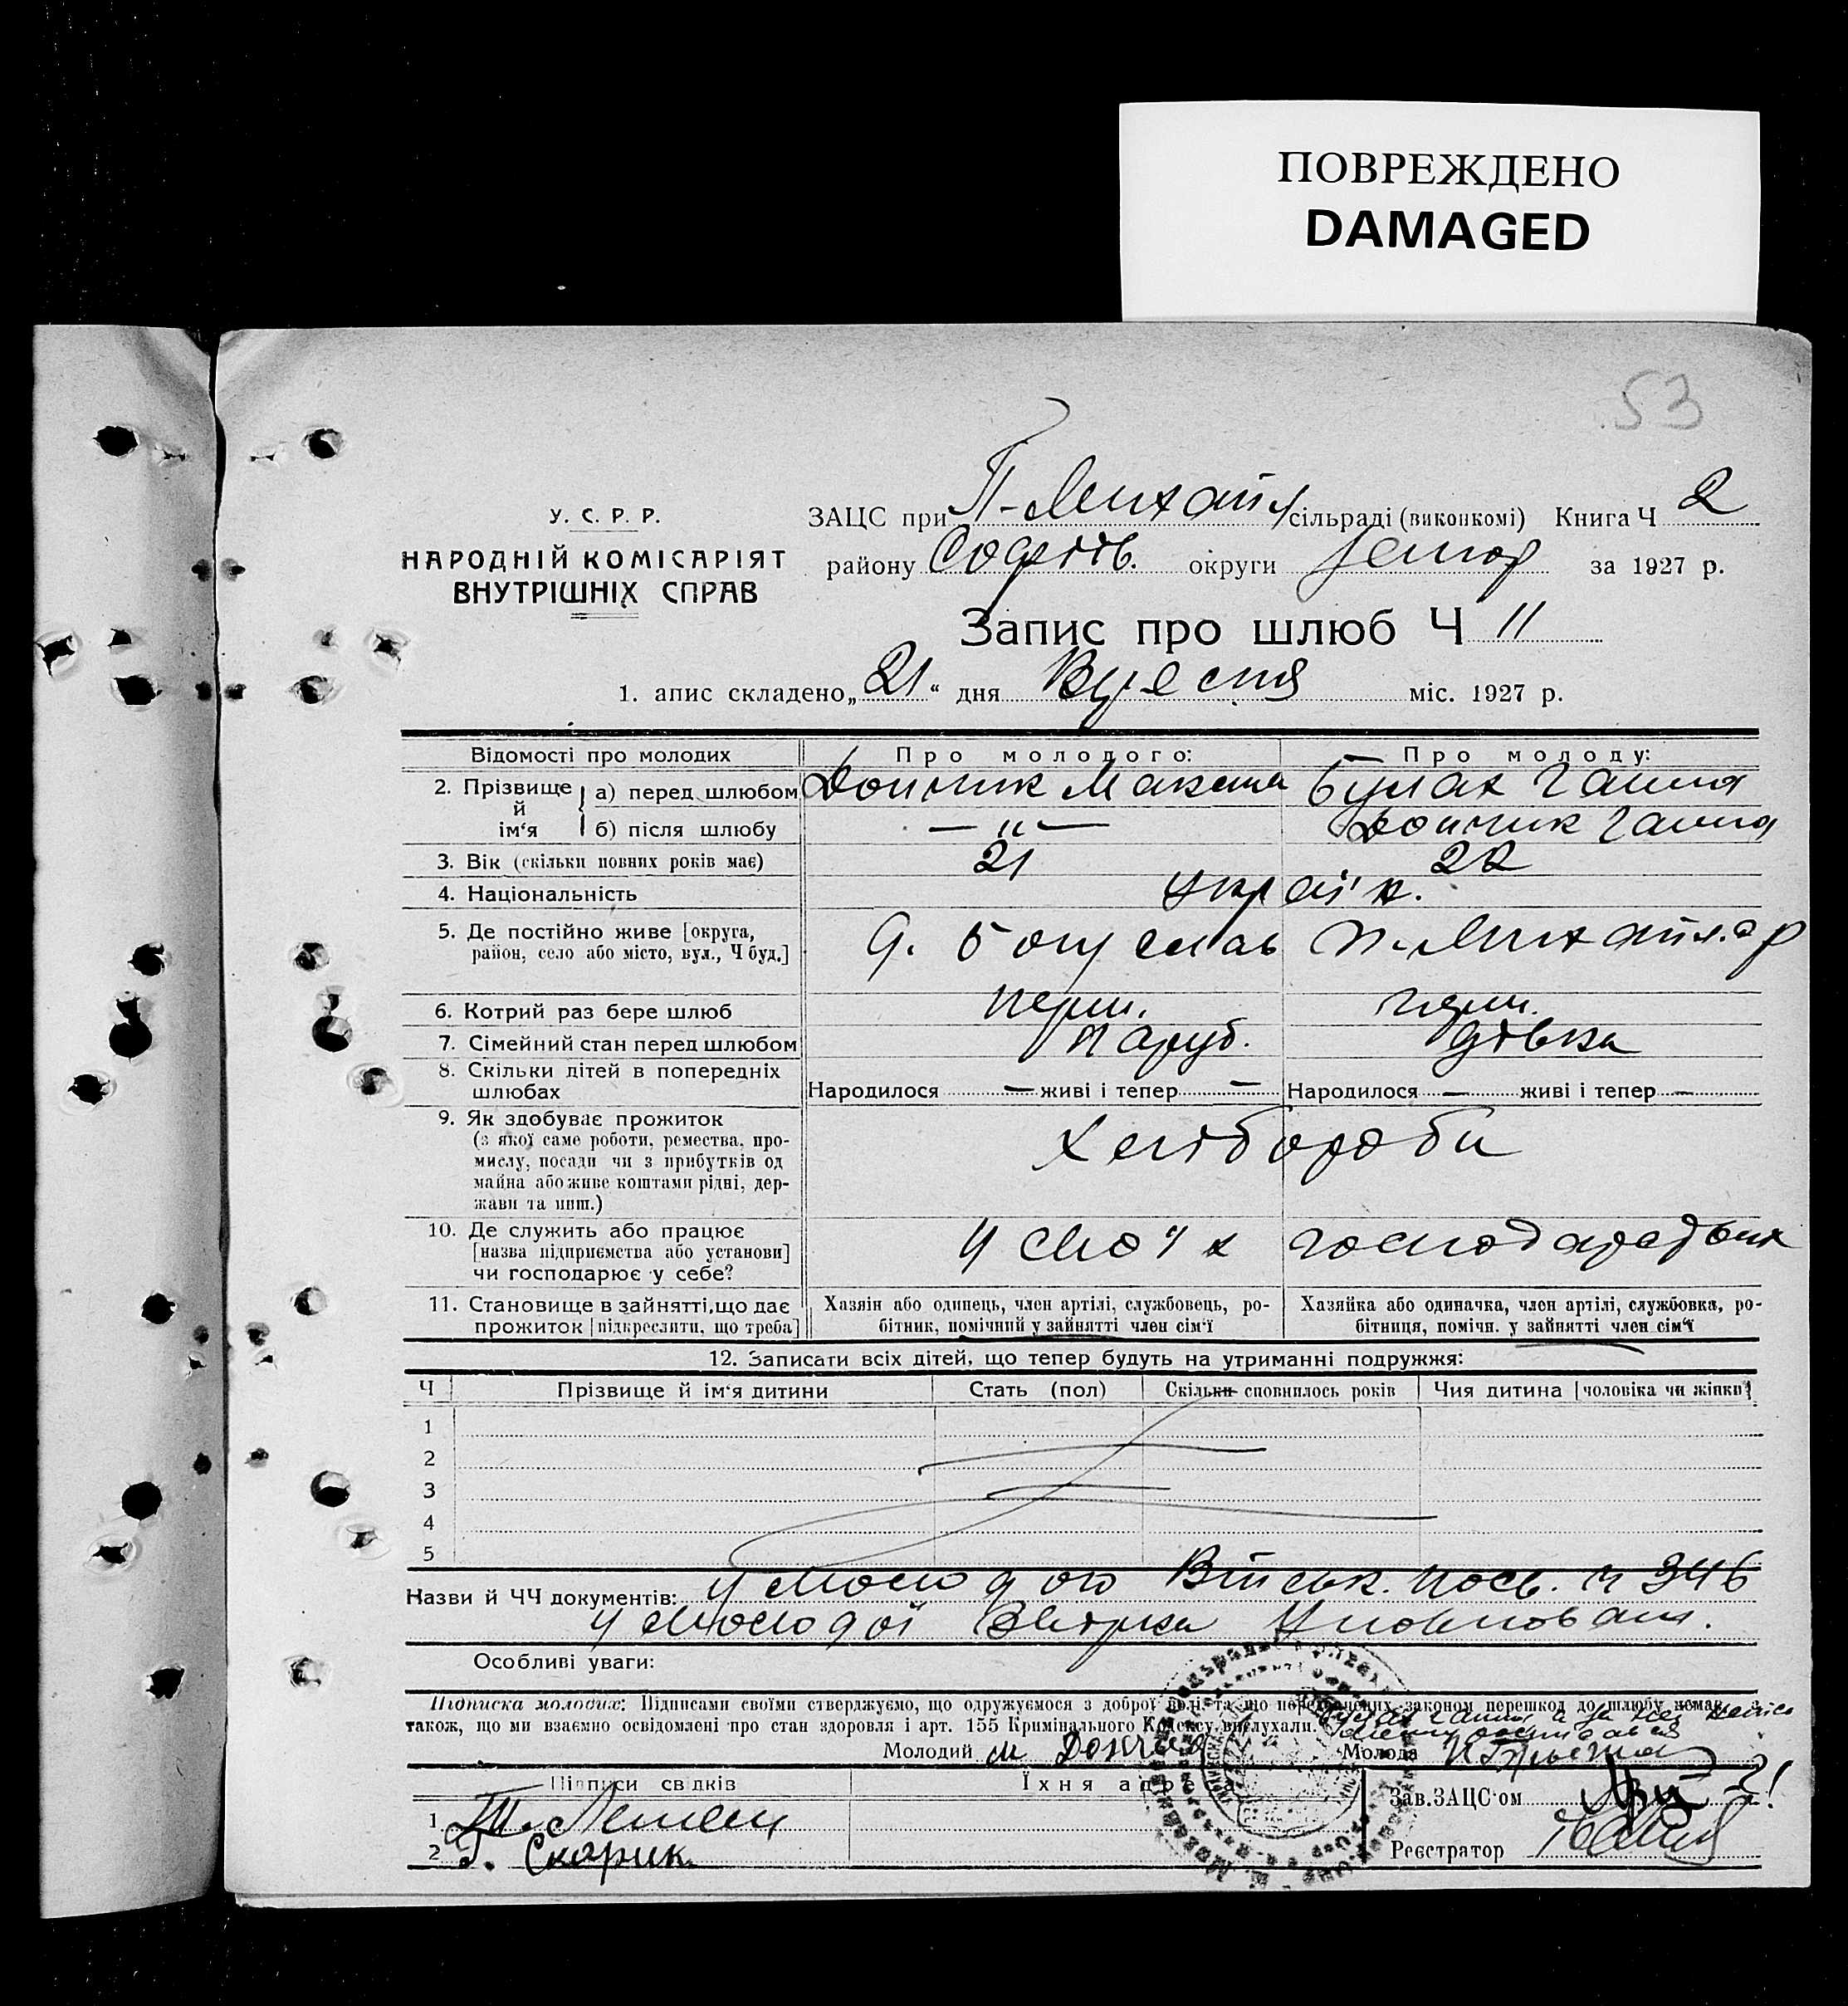 ПОВРЕЖДЕНО
DAMAGED
53
У. С. Р. Р.
НАРОДНІЙ КОМІСАРІЯТ
ВНУТРІШНІХ СПРАВ
ЗАЦС при П-Михайл сільраді (виконкомі) Книга Ч 2
району Софіїв. округи за 1927 р.
Запис про шлюб Ч 11
1. апис складено „21“ дня Вересня міс. 1927 р.
Відомості про молодих Про молодого: Про молоду:
2. Прізвище й ім‘я а) перед шлюбом Дончик Максим Булах Ганна
б) після шлюбу — „ — Дончик Ганна
3. Вік (скільки повних років має) 21 22
4. Національність україн.
5. Де постійно живе [округа, район, село або місто, вул., Ч буд.] П-Михайл.
6. Котрий раз бере шлюб перш. перш.
7. Сімейний стан перед шлюбом Паруб. дівка
8. Скільки дітей в попередніх шлюбах Народилося — живі і тепер — Народилося — живі і тепер —
9. Як здобуває прожиток
(з якої саме роботи, ремества, про-
мислу, посади чи з прибутків од
майна або живе коштами рідні, дер-
жави та инш.) Хлібороби
10. Де служить або працює
[назва підприємства або установи]
чи господарює у себе? у своїх господарствах
11. Становище в зайнятті, що дає прожиток [підкреслити, що треба] Хазяїн або одинець, член артілі, службовець, ро-
бітник, помічний у зайнятті член сім‘ї
Хазяйка або одиначка, член артілі, службовка, ро-
бітниця, помічн. у зайнятті член сім‘ї
12. Записати всіх дітей, що тепер будуть на утриманні подружжя:
Ч Прізвище й ім‘я дитини Стать (пол) Скільки сповнилось років Чия дитина [чоловіка чи жінки]
1
2
3
4
5
Назви й ЧЧ документів: у молодого Військ. посв. Ч 346
у молодої
Особливі уваги:
Підписка молодих: Підписами своїми стверджуємо, що одружуємося з доброї волі та що передбачених законом перешкод до шлюбу немає, а
також, що ми взаємно освідомлені про стан здоровля і арт. 155 Кримінального Кодексу вислухали.
Молодий М Дончик Молода
Підписи свідків Їхня адреса Зав. ЗАЦС‘ом
1
2 Г. Скорик. Реєстратор